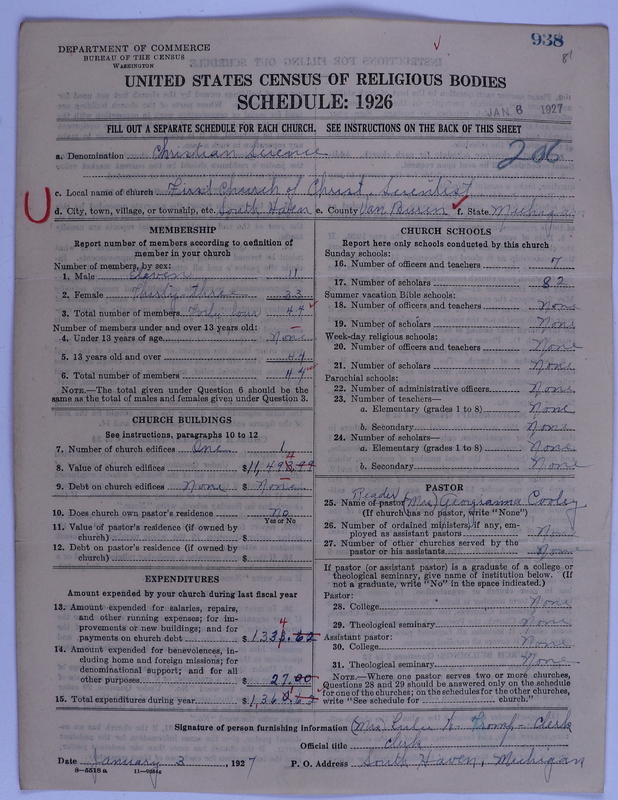 938
81
DEPARTMENT OF COMMERCE
BUREAU OF THE CENSUS
WASHINGTON
UNITED STATES CENSUS OF RELIGIOUS BODIES
SCHEDULE: 1926
JAN 6 1927
FILL OUT A SEPARATE SCHEDULE FOR EACH CHURCH. SEE INSTRUCTIONS ON THE BACK OF THIS SHEET
a. Denomination Christian Science
206
c. Local name of church First Church of Christ, Scientist
d. City, town, village, or township, etc. South Haven e. County Van Buren f. State Michigan
MEMBERSHIP
Report number of members according to definition of
member in your church
Number of members, by sex:
1. Male Eleven 11
2. Female Thirty-three 33
3. Total number of members Forty four 44
Number of members under and over 13 years old:
4. Under 13 years of age None
5. 13 years old and over 44
6. Total number of members 44
NOTE.—The total given under Question 6 should be the
same as the total of males and females given under Question 3.
CHURCH BUILDINGS
See instructions, paragraphs 10 to 12
7. Number of church edifices One 1
8. Value of church edifices $11,493.99
4
9. Debt on church edifices None $ None
10. Does church own pastor's residence? No
Yes or No
11. Value of pastor's residence (if owned by
church) $
12. Debt on pastor's residence (if owned by
church) $
EXPENDITURES
Amount expended by your church during last fiscal year
13. Amount expended for salaries, repairs,
and other running expenses; for im-
provements or new buildings; and for
payments on church debt $1,333.62
4
14. Amount expended for benevolences, in-
cluding home and foreign missions; for
denominational support; and for all
other purposes $ 27.00
15. Total expenditures during year $1,360.62
1
CHURCH SCHOOLS
Report here only schools conducted by this church
Sunday schools:
16. Number of officers and teachers 7
17. Number of scholars 82
Summer vacation Bible schools:
18. Number of officers and teachers None
19. Number of scholars None
Week-day religious schools:
20. Number of officers and teachers None
21. Number of scholars None
Parochial schools:
22. Number of administrative officers None
23. Number of teachers—
a. Elementary (grades 1 to 8) None
b. Secondary None
24. Number of scholars—
a. Elementary (grades 1 to 8) None
b. Secondary None
PASTOR
Reader
25. Name of pastor (Mrs) Georgianna Cooley
(If church has no pastor, write "None")
26. Number of ordained ministers, if any, em-
ployed as assistant pastors None
27. Number of other churches served by the
pastor or his assistants None
If pastor (or assistant pastor) is a graduate of a college or
theological seminary, give name of institution below. (If
not a graduate, write "No" in the space indicated.)
Pastor:
28. College None
29. Theological seminary None
Assistant pastor:
30. College None
31. Theological seminary None
NOTE.—Where one pastor serves two or more churches,
Questions 28 and 29 should be answered only on the schedule
for one of the churches; on the schedules for the other churches,
write "See schedule for church."
Signature of person furnishing information (Mrs) Lulu Tromp - Clerk
Official title Clerk
Date January 3, 1927 P. O. Address South Haven, Michigan
8—5518 a